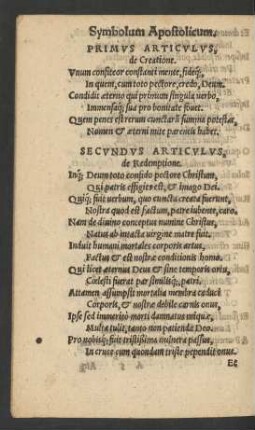 Symbolum Apostolicum.
PRIMVS ARTICVLVS,
de Creatione.
Vnum confiteor constanti mente, fideq́;,
In quem, cum toto pectore, credo, Deum.
Condidit aeterno qui primum singula verbo,
Immensaq́; sua pro bonitate fouet.
Quem penes est rerum cunctarũ summa potestas,
Numen & aeterni mite parentis habet.
SECVNDVS ARTICVLVS,
de Redemptione.
Inq́; Deum toto confido pectore Christum,
Qui patris effigies est, & imago Dei.
Quiq́; fuit verbum, quo cuncta creata fuerunt,
Nostra quod est factum, patre iubente, caro.
Nam de diuino conceptus numine Christus,
Natus ab intacta virgine matre fuit.
Induit humani mortales corporis artus,
Factus & est nostra conditione homo.
Qui licet aeternus Deus & sine temporis ortu,
Coelesti fuerat par similisq́; patri.
Attamen assumpsit mortalia membra caduci
Corporis, & nostrae debile carnis onus,
Ipse sed immeritò morti damnatus iniquae,
Multa tulit, tanto non patienda Deo.
Pro nobisq́; fuit tristissima funera passus,
In cruce cum quondam triste pependit onus.
Et